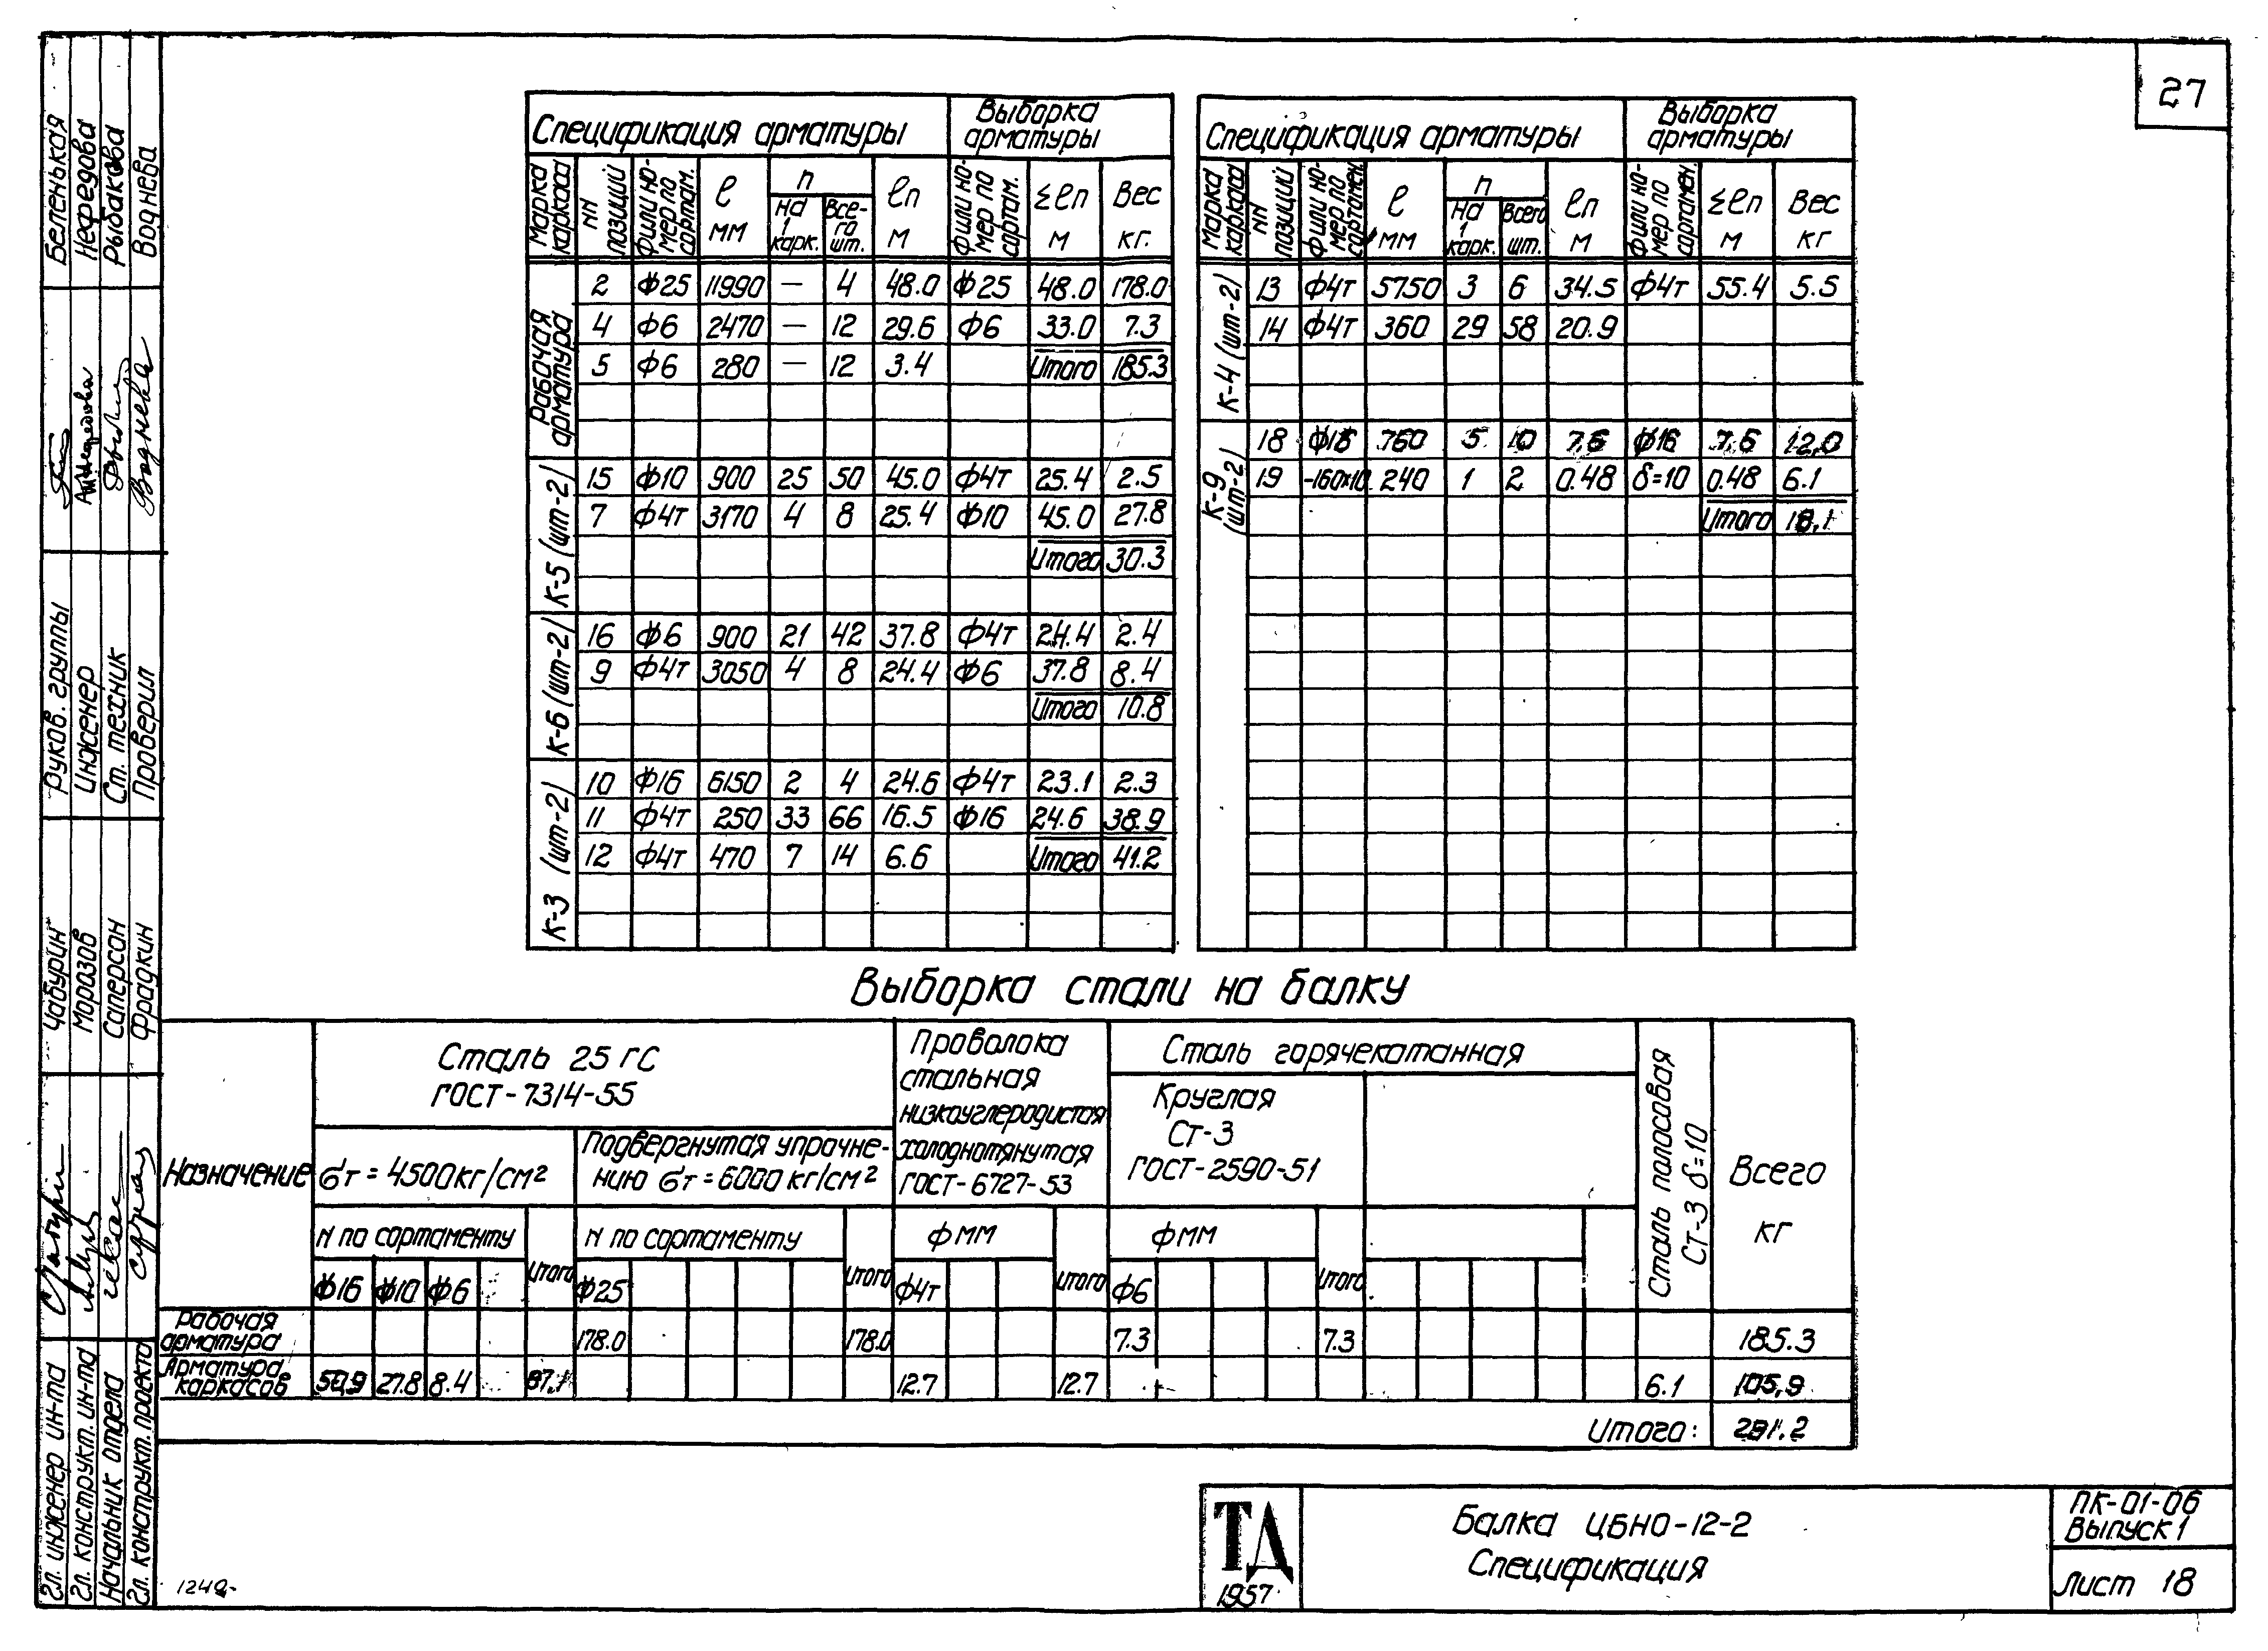 27
Спецификация арматуры Выборка арматуры
Марка каркаса NN позиций Ф или номер по сортам. ℓ мм n На 1 карк. Всего шт. ℓn м Ф или номер по сортам. Σℓn м Вес кг.
Рабочая арматура
2 ф25 11990 — 4 48.0 ф25 48.0 178.0
4 ф6 2470 — 12 29.6 ф6 33.0 7.3
5 ф6 280 — 12 3.4 Итого 185.3
К-5 (шт-2)
15 ф10 900 25 50 45.0 ф4т 25.4 2.5
7 ф4т 3170 4 8 25.4 ф10 45.0 27.8
Итого 30.3
К-6 (шт-2)
16 ф6 900 21 42 37.8 ф4т 24.4 2.4
9 ф4т 3050 4 8 24.4 ф6 37.8 8.4
Итого 10.8
К-3 (шт-2)
10 ф16 6150 2 4 24.6 ф4т 23.1 2.3
11 ф4т 250 33 66 16.5 ф16 24.6 38.9
12 ф4т 470 7 14 6.6 Итого 41.2
Спецификация арматуры Выборка арматуры
Марка каркаса NN позиций Ф или номер по сортамен. ℓ мм n На 1 карк. Всего шт. ℓn м Ф или номер по сортамен. Σℓn м Вес кг
К-4 (шт-2)
13 ф4т 5750 3 6 34.5 ф4т 55.4 5.5
14 ф4т 360 29 58 20.9
К-9 (шт-2)
18 ф16 760 5 10 7.6 ф16 7.6 12.0
19 -160×10 240 1 2 0.48 δ=10 0.48 6.1
Итого 18.1
Выборка стали на балку
Назначение
Сталь 25 ГС
ГОСТ-7314-55
σт = 4500 кг/см²
N по сортаменту
ф16 ф10 ф6 Итого
Подвергнутая упрочнению σт = 6000 кг/см²
N по сортаменту
ф25 Итого
Проволока
стальная
низкоуглеродистая
холоднотянутая
ГОСТ-6727-53
фмм
ф4т Итого
Сталь горячекатанная
Круглая
Ст-3
ГОСТ-2590-51
фмм
ф6 Итого
Сталь полосовая
Ст-3 δ=10
Всего
кг
Рабочая арматура 178.0 178.0 7.3 7.3 185.3
Арматура каркасов 50.9 27.8 8.4 87.1 12.7 12.7 6.1 105.9
Итого: 291.2
ТД
1957
Балка ЦБНО-12-2
Спецификация
ПК-01-06
Выпуск 1
Лист 18
Гл. инженер ин-та Чабурин Руков. группы Беленькая
Гл. конструкт. ин-та Морозов Инженер Нефедова
Начальник отдела Саперсон Ст. техник Рыбакова
Гл. конструкт. проекта Фрадкин Проверил Воднева